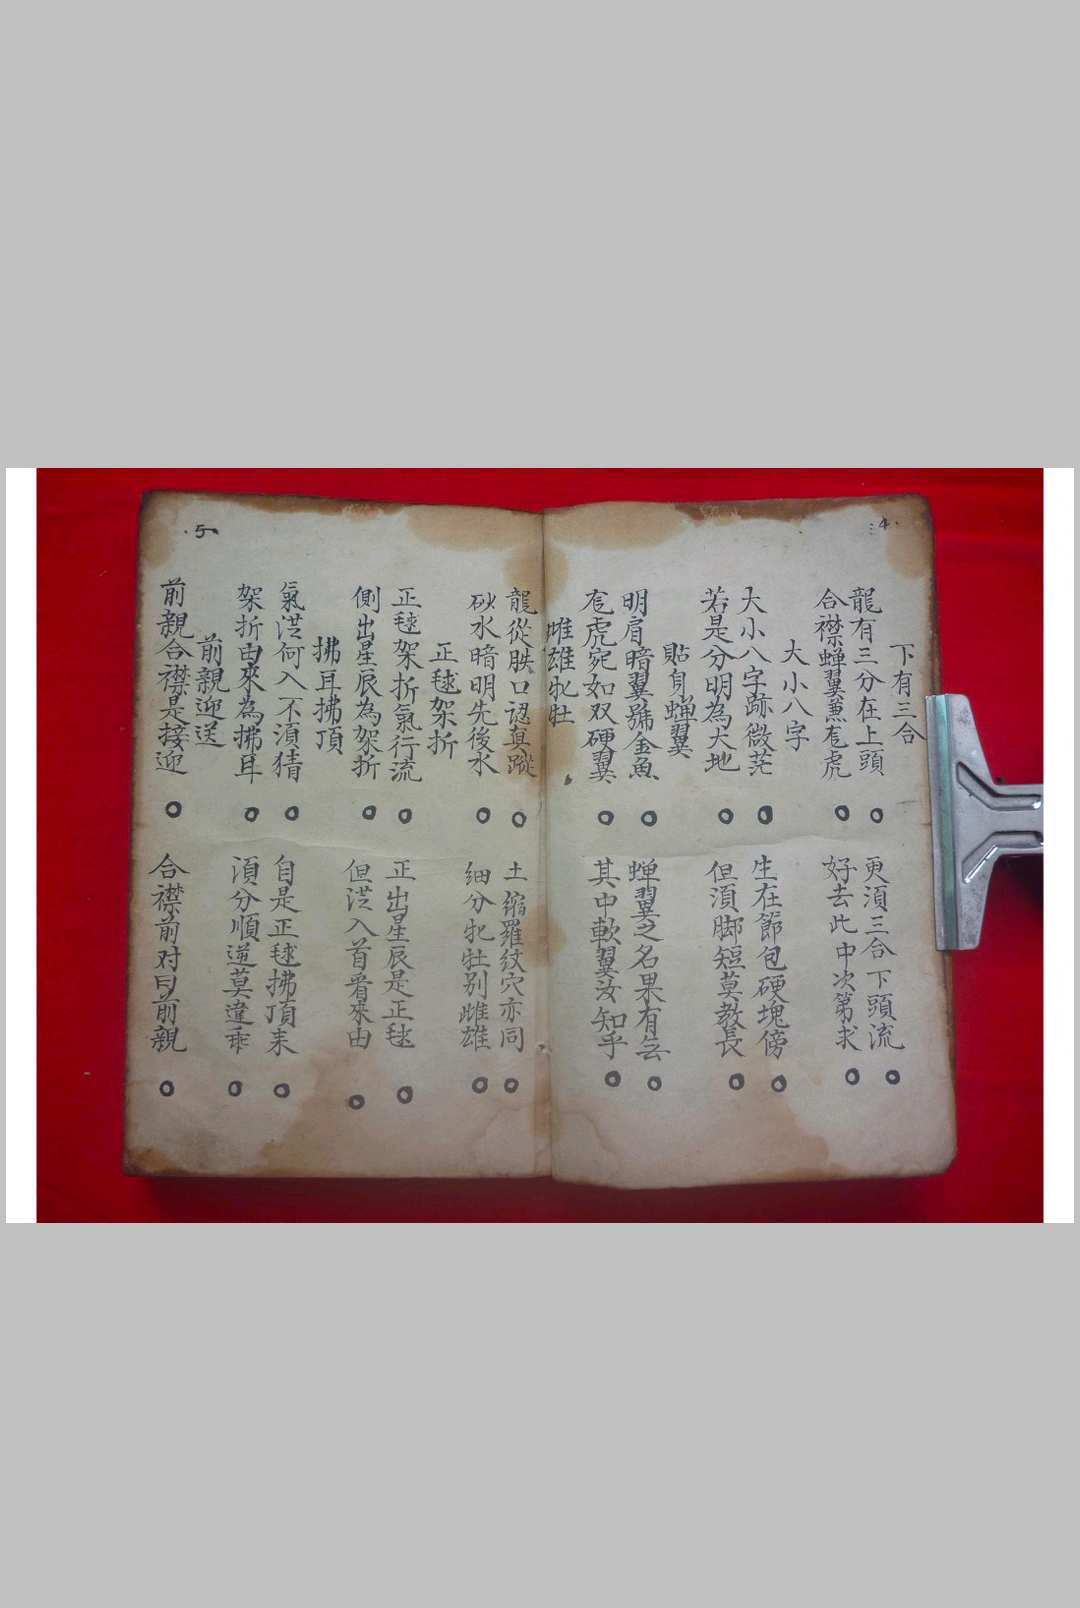 4
下有三合
龍有三分在上頭 更須三合下頭流
合襟蟬翼蔥虎 好去此中次第求
大小八字
大小八字跡微茫 生在節包硬塊傍
若是分明為大地 但須脚短莫教長
貼身蟬翼
明肩暗翼號金魚 蟬翼之名果有
虎宛如双硬翼 其中軟翼汝知乎
雌雄牝牡
龍從口認真蹤 土縮羅紋穴亦同
砂水暗明先後水 细分牝牡别雌雄
5
正毬架折
正毬架折氣行流 正出星辰是正毬
側出星辰為架折 但淂入首看來由
拂耳拂頂
氣淂何入不須猜 自是正毬拂頂来
架折由來為拂耳 須分順逆莫違乖
前親迎送
前親合襟是接迎 合襟前对曰前親